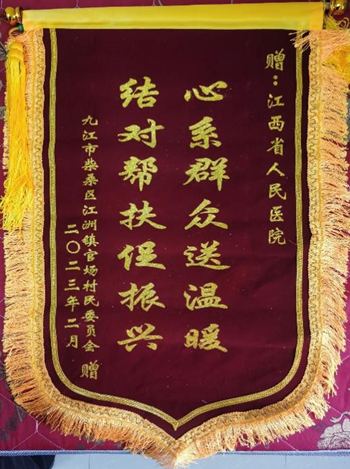 赠：江西省人民医院
心系群众送温暖
结对帮扶促振兴
九江市柴桑区江洲镇官场村民委员会 赠
二〇二三年二月